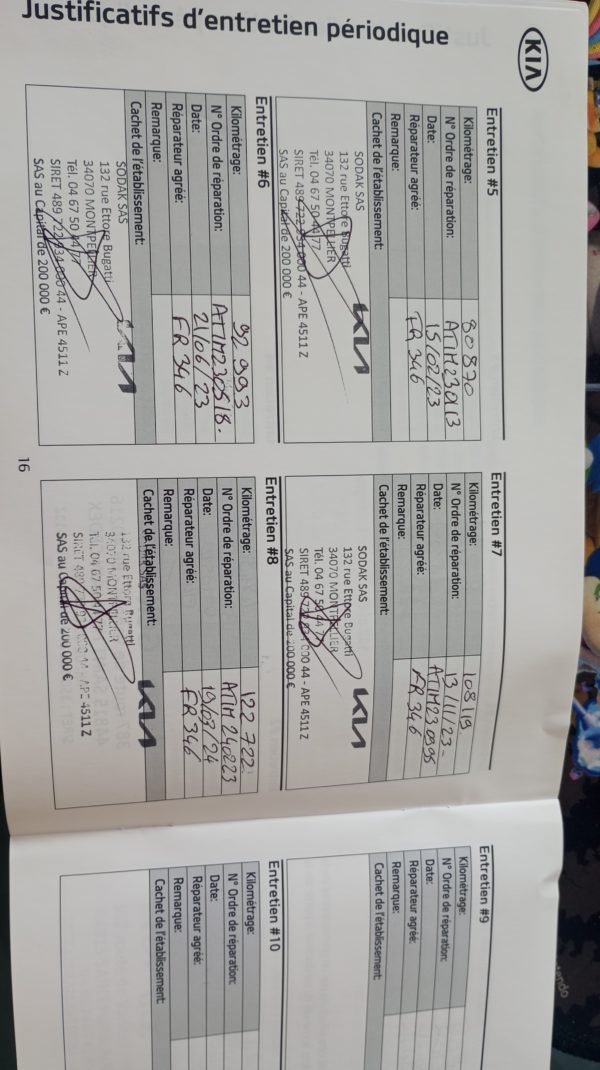 Justificatifs d'entretien périodique
KIA
Entretien #5
Kilométrage: 80870
N° Ordre de réparation: ATIM230113
Date: 15/02/23
Réparateur agréé: FR346
Remarque:
Cachet de l'établissement:
SODAK SAS
132 rue Ettore Bugatti
34070 MONTPELLIER
Tél. 04 67 50 44 77
SIRET 489 722 934 000 44 - APE 4511 Z
SAS au Capital de 200 000 €
KIA
Entretien #6
Kilométrage: 92 993
N° Ordre de réparation: ATIM230518.
Date: 21/06/23
Réparateur agréé: FR346
Remarque:
Cachet de l'établissement:
SODAK SAS
132 rue Ettore Bugatti
34070 MONTPELLIER
Tél. 04 67 50 44 77
SIRET 489 722 934 000 44 - APE 4511 Z
SAS au Capital de 200 000 €
KIA
16
Entretien #7
Kilométrage: 108119
N° Ordre de réparation: 13/11/23-
Date: ATIM230995
Réparateur agréé: FR346
Remarque:
Cachet de l'établissement:
SODAK SAS
132 rue Ettore Bugatti
34070 MONTPELLIER
Tél. 04 67 50 44 77
SIRET 489 000 44 - APE 4511 Z
SAS au Capital de 200 000 €
KIA
Entretien #8
Kilométrage: 122 722
N° Ordre de réparation: ATIM240223
Date: 19/03/24
Réparateur agréé: FR346
Remarque:
Cachet de l'établissement:
132 rue Ettore Bugatti
34070 MONTPELLIER
Tél. 04 67 50
SIRET 489 44 - APE 4511 Z
SAS au Capital de 200 000 €
KIA
Entretien #9
Kilométrage:
N° Ordre de réparation:
Date:
Réparateur agréé:
Remarque:
Cachet de l'établissement:
Entretien #10
Kilométrage:
N° Ordre de réparation:
Date:
Réparateur agréé:
Remarque:
Cachet de l'établissement: